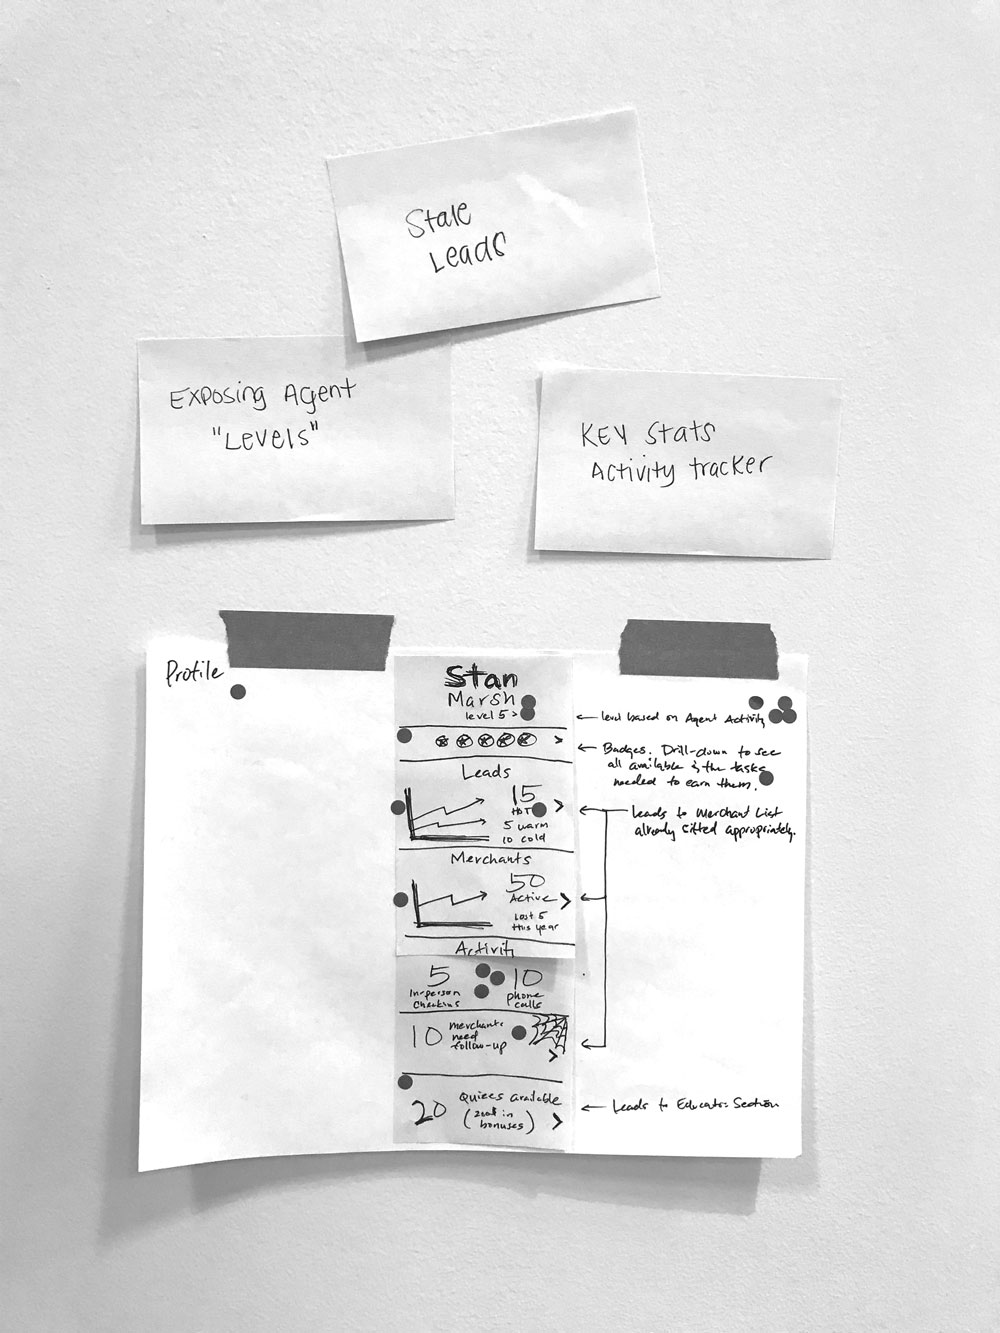 Stale
Leads
Exposing Agent
"Levels"
KEY Stats
Activity tracker
Profile
Stan
Marsh
level 5 >
>
Leads
15
HOT
>
5 warm
10 cold
Merchants
50
Active
>
Lost 5
this year
Activity
5
In-person
Checkins
10
phone
calls
10
merchants
need
follow-up
>
20
Quizes available
( in
bonuses)
>
level based on Agent Activity
Badges. Drill-down to see
all available & the tasks
needed to earn them.
Leads to Merchant List
already sifted appropriately.
Leads to Section